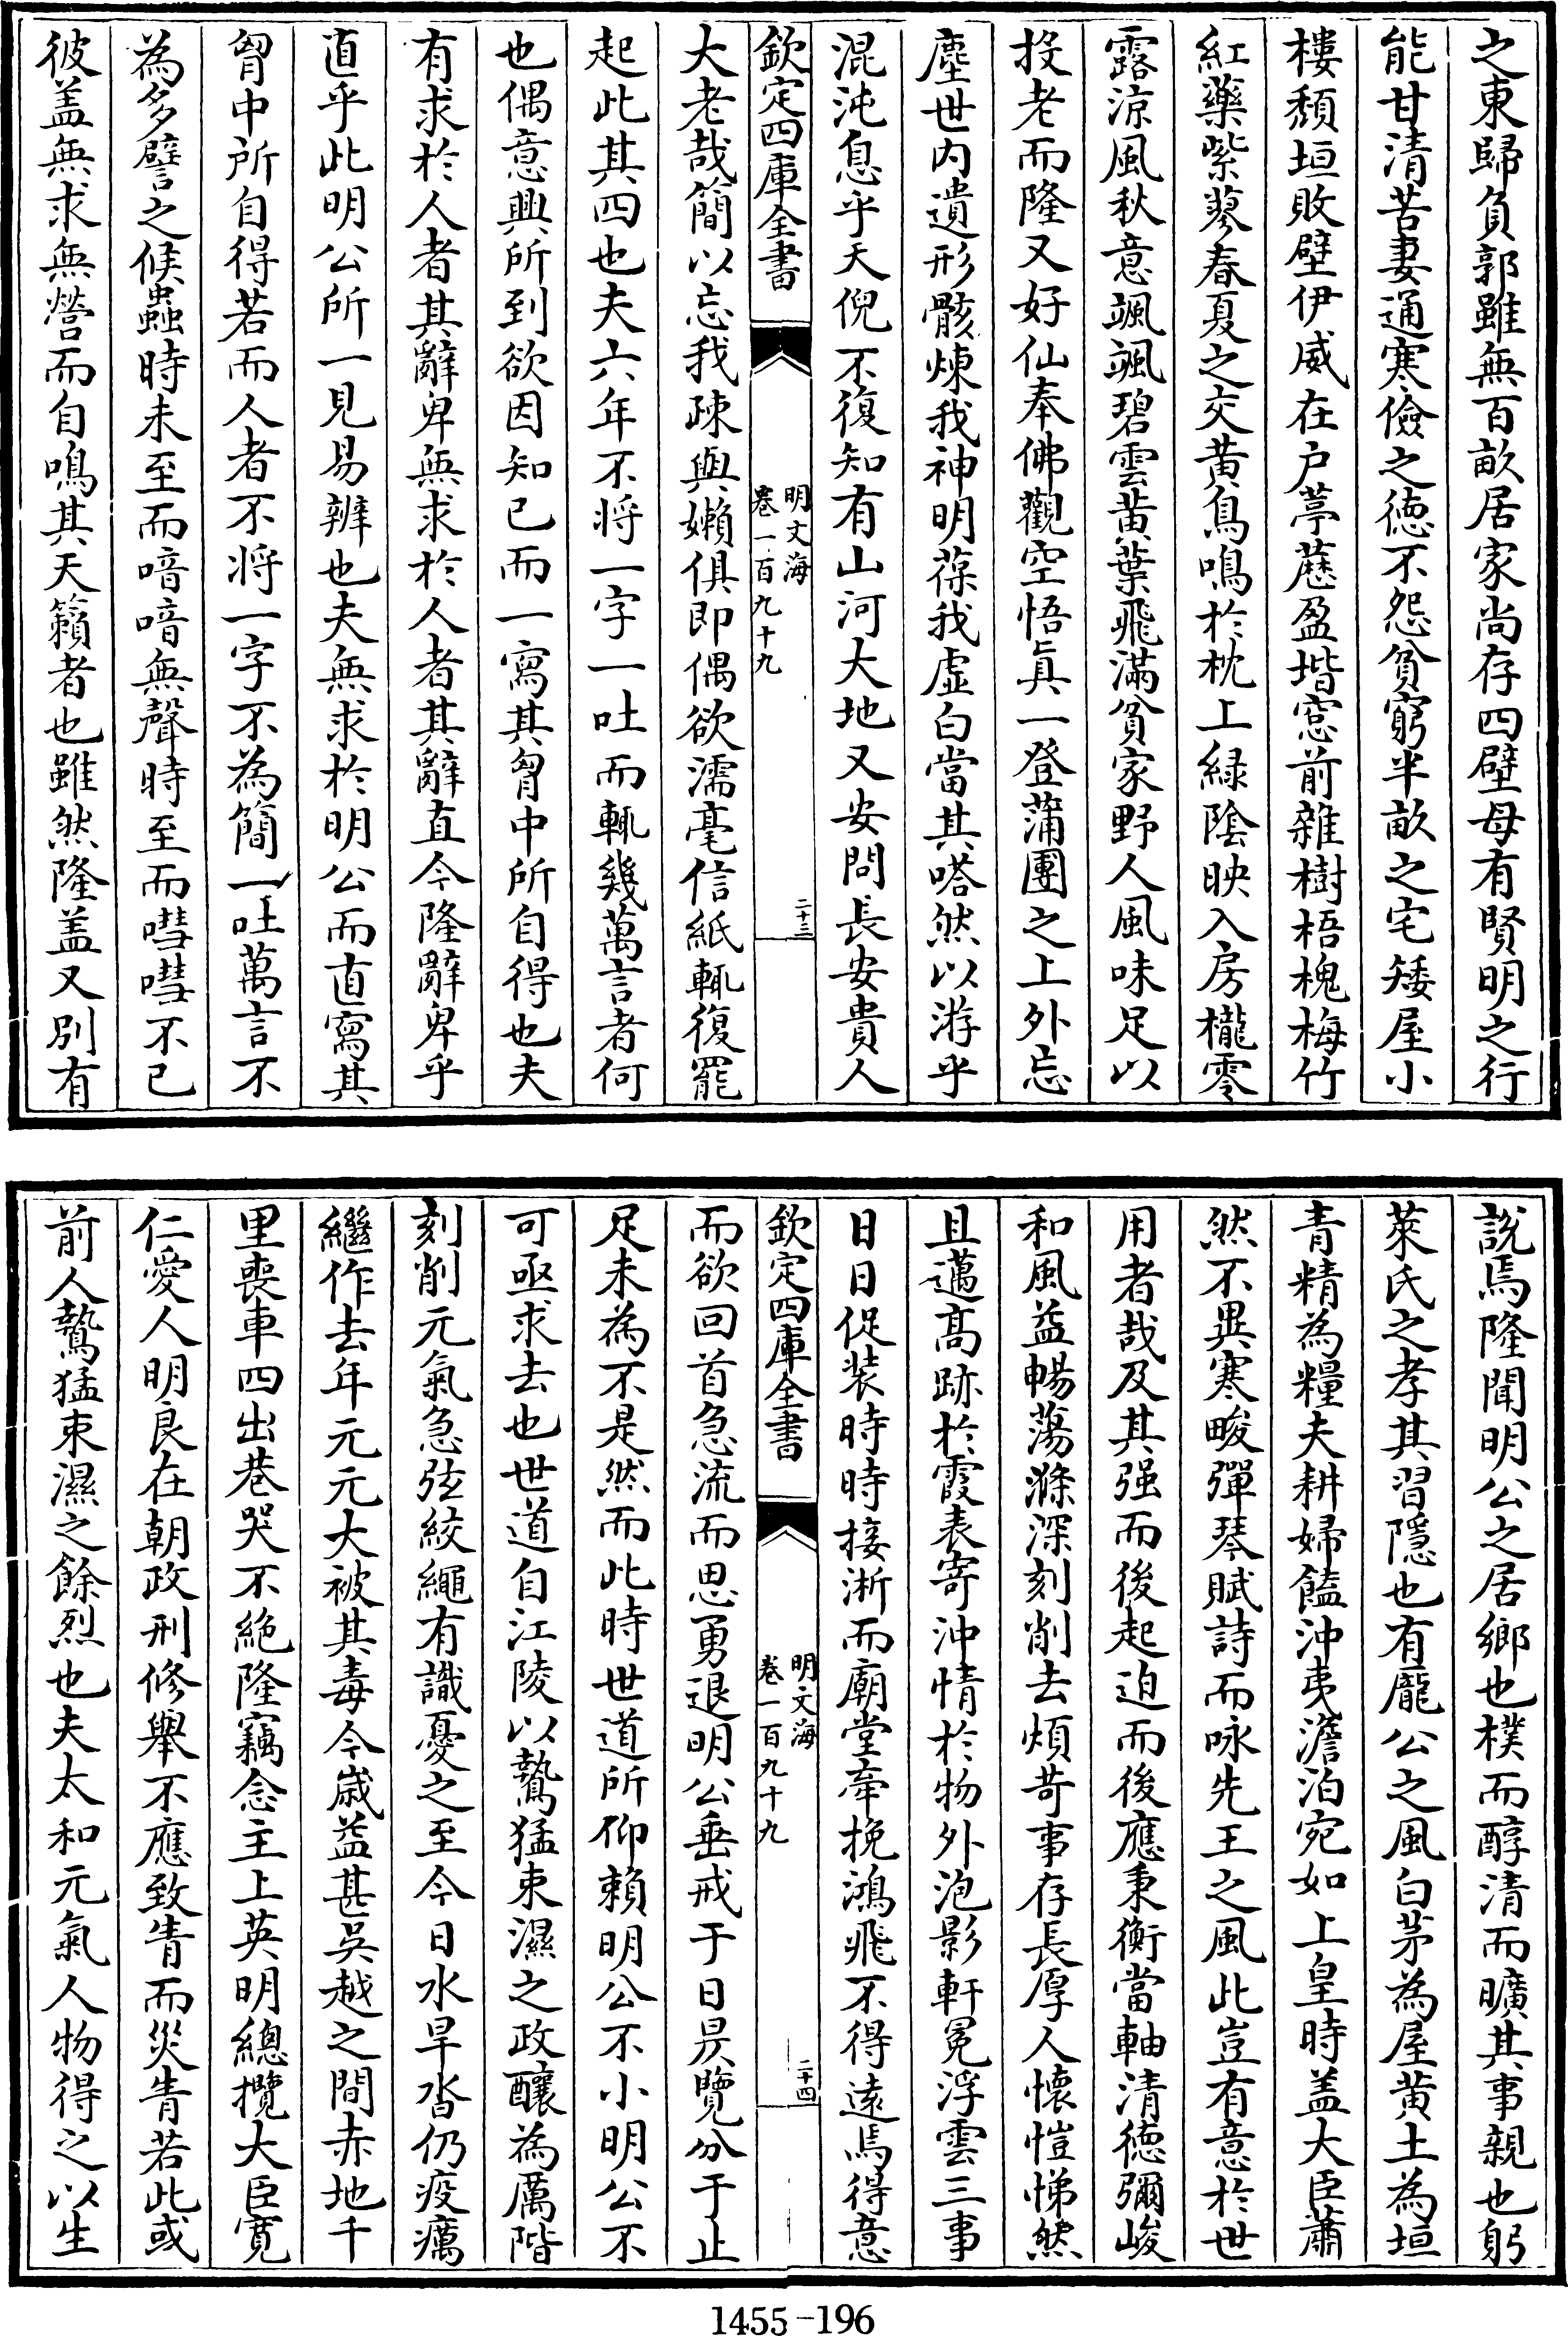 之東歸負郭雖無百畝居家尚存四壁母有賢明之行
能甘清苦妻通寒儉之徳不怨貧窮半畝之宅矮屋小
樓頽垣敗壁伊威在户葶藶盈堦窓前雜樹梧槐梅竹
紅藥紫蓼春夏之交黄鳥鳴於枕上緑隂映入房櫳零
露涼風秋意颯颯碧雲黄葉飛滿貧家野人風味足以
投老而隆又好仙奉佛觀空悟真一登蒲團之上外忘
塵世内遺形骸煉我神明葆我虚白當其嗒然以游乎
混沌息乎天倪不復知有山河大地又安問長安貴人
欽定四庫全書
明文海
卷一百九十九
二十三
大老哉簡以忘我疎與嬾俱即偶欲濡毫信紙輒復罷
起此其四也夫六年不将一字一吐而輒幾萬言者何
也偶意興所到欲因知已而一寫其胷中所自得也夫
有求於人者其辭卑無求於人者其辭直今隆辭卑乎
直乎此明公所一見易辨也夫無求於明公而直寫其
胷中所自得若而人者不将一字不為簡一吐萬言不
為多譬之候蟲時未至而喑喑無聲時至而嘒嘒不已
彼盖無求無營而自鳴其天籟者也雖然隆盖又别有
說焉隆聞明公之居鄉也樸而醇清而曠其事親也躬
萊氏之孝其習隱也有龎公之風白茅為屋黄土為垣
青精為糧夫耕婦饁沖夷澹泊宛如上皇時盖大臣蕭
然不異寒畯彈琴賦詩而咏先王之風此豈有意於世
用者哉及其强而後起迫而後應秉衡當軸清徳彌峻
和風益暢蕩滌深刻削去煩苛事存長厚人懷愷悌然
且邁髙跡於霞表寄沖情於物外泡影軒冕浮雲三事
日日促装時時接淅而廟堂牽挽鴻飛不得遠焉得意
欽定四庫全書
明文海
卷一百九十九
二十四
而欲回首急流而思勇退明公垂戒于日昃覽分于止
足未為不是然而此時世道所仰賴明公不小明公不
可亟求去也世道自江陵以鷙猛束濕之政釀為厲階
刻削元氣急弦絞繩有識憂之至今日水旱沓仍疫癘
繼作去年元元大被其毒今嵗益甚吳越之間赤地千
里喪車四出巷哭不絶隆竊念主上英明總攬大臣寛
仁愛人明良在朝政刑修舉不應致眚而災眚若此或
前人鷙猛束濕之餘烈也夫太和元氣人物得之以生
1455-196